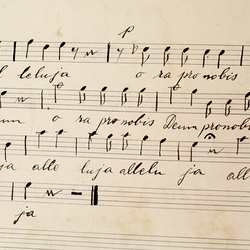 p
leluja o ra pro nobis
o ra pro nobis Deum pro nobis
alle luja allelu ja all
ja